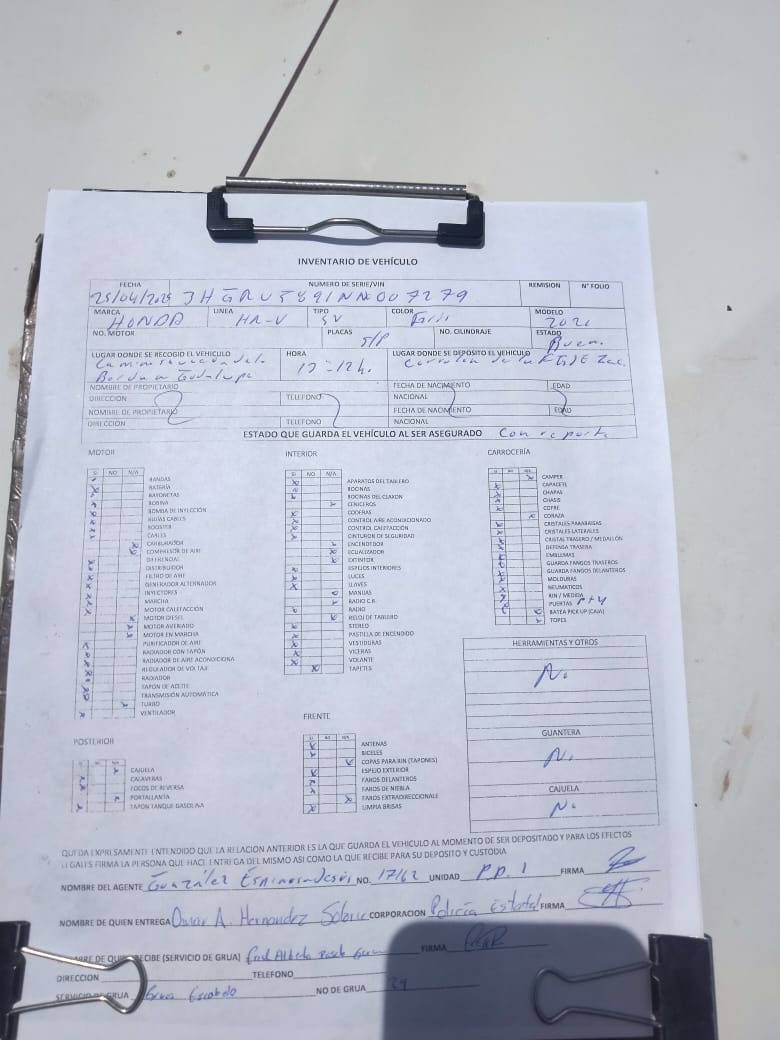 INVENTARIO DE VEHÍCULO
FECHA NUMERO DE SERIE/VIN REMISION N° FOLIO
3HGRU5891NN007279
MARCA LINEA TIPO COLOR MODELO
HONDA HR-V SV Gris
NO. MOTOR PLACAS S/P NO. CILINDRAJE ESTADO Bueno
LUGAR DONDE SE RECOGIO EL VEHICULO HORA LUGAR DONDE SE DEPOSITO EL VEHICULO
Zac.
Guadalupe
NOMBRE DE PROPIETARIO FECHA DE NACIMIENTO EDAD
DIRECCION TELEFONO NACIONAL
NOMBRE DE PROPIETARIO FECHA DE NACIMIENTO EDAD
DIRECCION TELEFONO NACIONAL
ESTADO QUE GUARDA EL VEHÍCULO AL SER ASEGURADO Con reporte
MOTOR
SI NO N/A
BANDAS
BATERÍA
BAYONETAS
BOBINA
BOMBA DE INYECCIÓN
BUJÍAS CABLES
BOOSTER
CABLES
CARBURADOR
COMPRESOR DE AIRE
DIFERENCIAL
DISTRIBUIDOR
FILTRO DE AIRE
GENERADOR ALTERNADOR
INYECTORES
MARCHA
MOTOR CALEFACCIÓN
MOTOR DIESEL
MOTOR AVERIADO
MOTOR EN MARCHA
PURIFICADOR DE AIRE
RADIADOR CON TAPÓN
RADIADOR DE AIRE ACONDICIONA
REGULADOR DE VOLTAJE
RADIADOR
TAPÓN DE ACEITE
TRANSMISIÓN AUTOMÁTICA
TURBO
VENTILADOR
INTERIOR
SI NO N/A
APARATOS DEL TABLERO
BOCINAS
BOCINAS DEL CLAXON
CENICEROS
CODERAS
CONTROL AIRE ACONDICIONADO
CONTROL CALEFACCIÓN
CINTURON DE SEGURIDAD
ENCENDEDOR
ECUALIZADOR
EXTINTOR
ESPEJOS INTERIORES
LUCES
LLAVES
MANIJAS
RADIO C.B.
RADIO
RELOJ DE TABLERO
STEREO
PASTILLA DE ENCENDIDO
VESTIDURAS
VICERAS
VOLANTE
TAPETES
CARROCERÍA
SI NO N/A
CAMPER
CAPACETE
CHAPAS
CHASIS
COFRE
CORAZA
CRISTALES PARABRISAS
CRISTALES LATERALES
CRISTAL TRASERO / MEDALLÓN
DEFENSA TRASERA
EMBLEMAS
GUARDA FANGOS TRASEROS
GUARDA FANGOS DELANTEROS
MOLDURAS
NEUMATICOS
RIN / MEDIDA
PUERTAS
BATEA PICK UP (CAJA)
TOPES
HERRAMIENTAS Y OTROS
No
GUANTERA
No
CAJUELA
No
POSTERIOR
CAJUELA
CALAVERAS
FOCOS DE REVERSA
PORTALLANTA
TAPON TANQUE GASOLINA
FRENTE
SI NO N/A
ANTENAS
BICELES
COPAS PARA RIN (TAPONES)
ESPEJO EXTERIOR
FAROS DELANTEROS
FAROS DE NIEBLA
FAROS EXTRADIRECCIONALE
LIMPIA BRISAS
QUEDA EXPRESAMENTE ENTENDIDO QUE LA RELACION ANTERIOR ES LA QUE GUARDA EL VEHICULO AL MOMENTO DE SER DEPOSITADO Y PARA LOS EFECTOS
LEGALES FIRMA LA PERSONA QUE HACE ENTREGA DEL MISMO ASI COMO LA QUE RECIBE PARA SU DEPOSITO Y CUSTODIA
NOMBRE DEL AGENTE González Espinosa Jesús NO. 17162 UNIDAD P.P. 1 FIRMA
NOMBRE DE QUIEN ENTREGA Omar A. Hernandez CORPORACION Policía Estatal FIRMA
DE QUIEN RECIBE (SERVICIO DE GRUA) FIRMA
DIRECCION TELEFONO
SERVICIO DE GRUA Gruas Escobedo NO DE GRUA